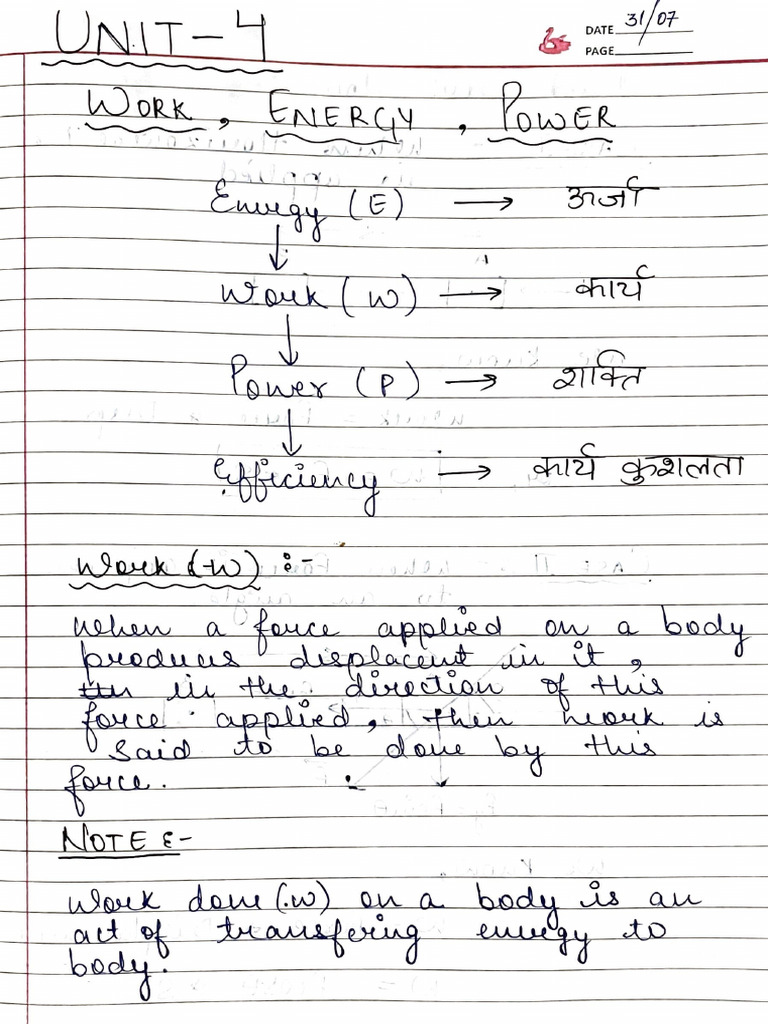 UNIT-4
DATE 31/07
PAGE
WORK, ENERGY, POWER
Energy (E) → ऊर्जा
↓
Work (W) → कार्य
↓
Power (P) → शक्ति
↓
Efficiency → कार्य कुशलता
Work (W) :-
When a force applied on a body
produces displacent in it,
in the direction of this
force applied, then work is
said to be done by this
force.
NOTE :-
Work done (W) on a body is an
act of transfering energy to
body.